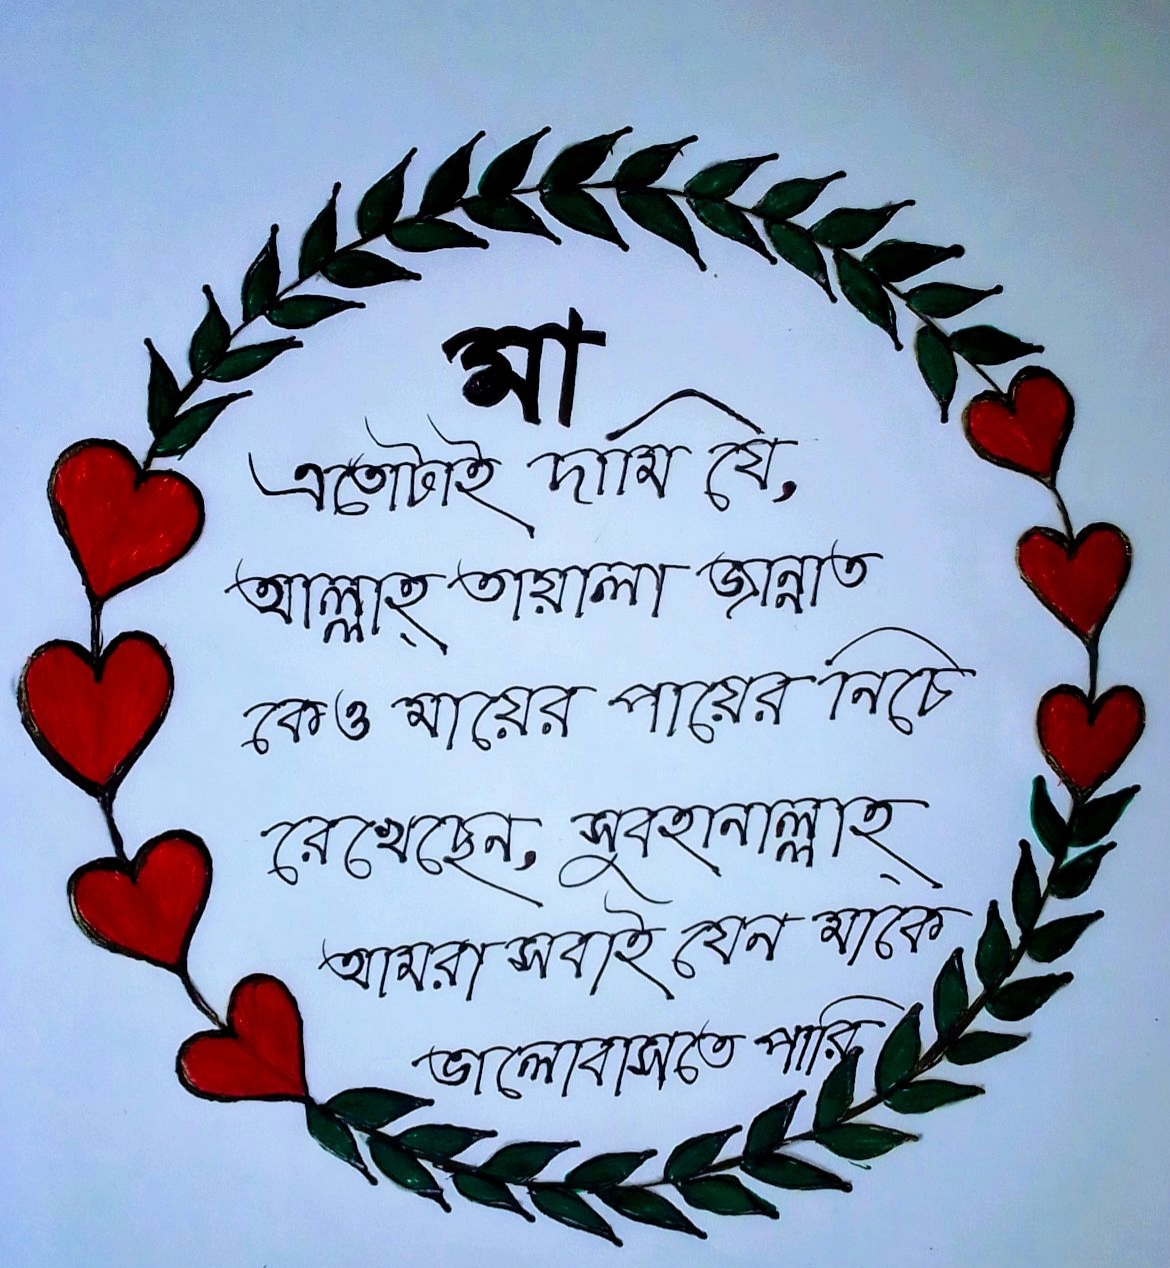 মা
এতোটাই দামি যে,
আল্লাহ্ তায়ালা জান্নাত
কেও মায়ের পায়ের নিচে
রেখেছেন, সুবহানাল্লাহ্
আমরা সবাই যেন মাকে
ভালোবাসতে পারি